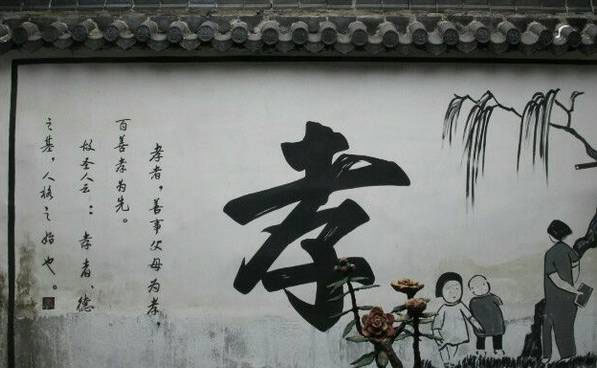 孝者，善事父母为孝，
百善孝为先。
故圣人云：孝者、德
之基，人格之始也。
孝